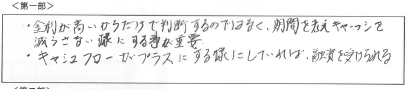 <第一部>
・金利が高いからだけで判断するのではなく、期間を考えキャッシュを
減らさない様にする事が重要
・キャッシュフローがプラスにする様にしていれば、融資を受けられる